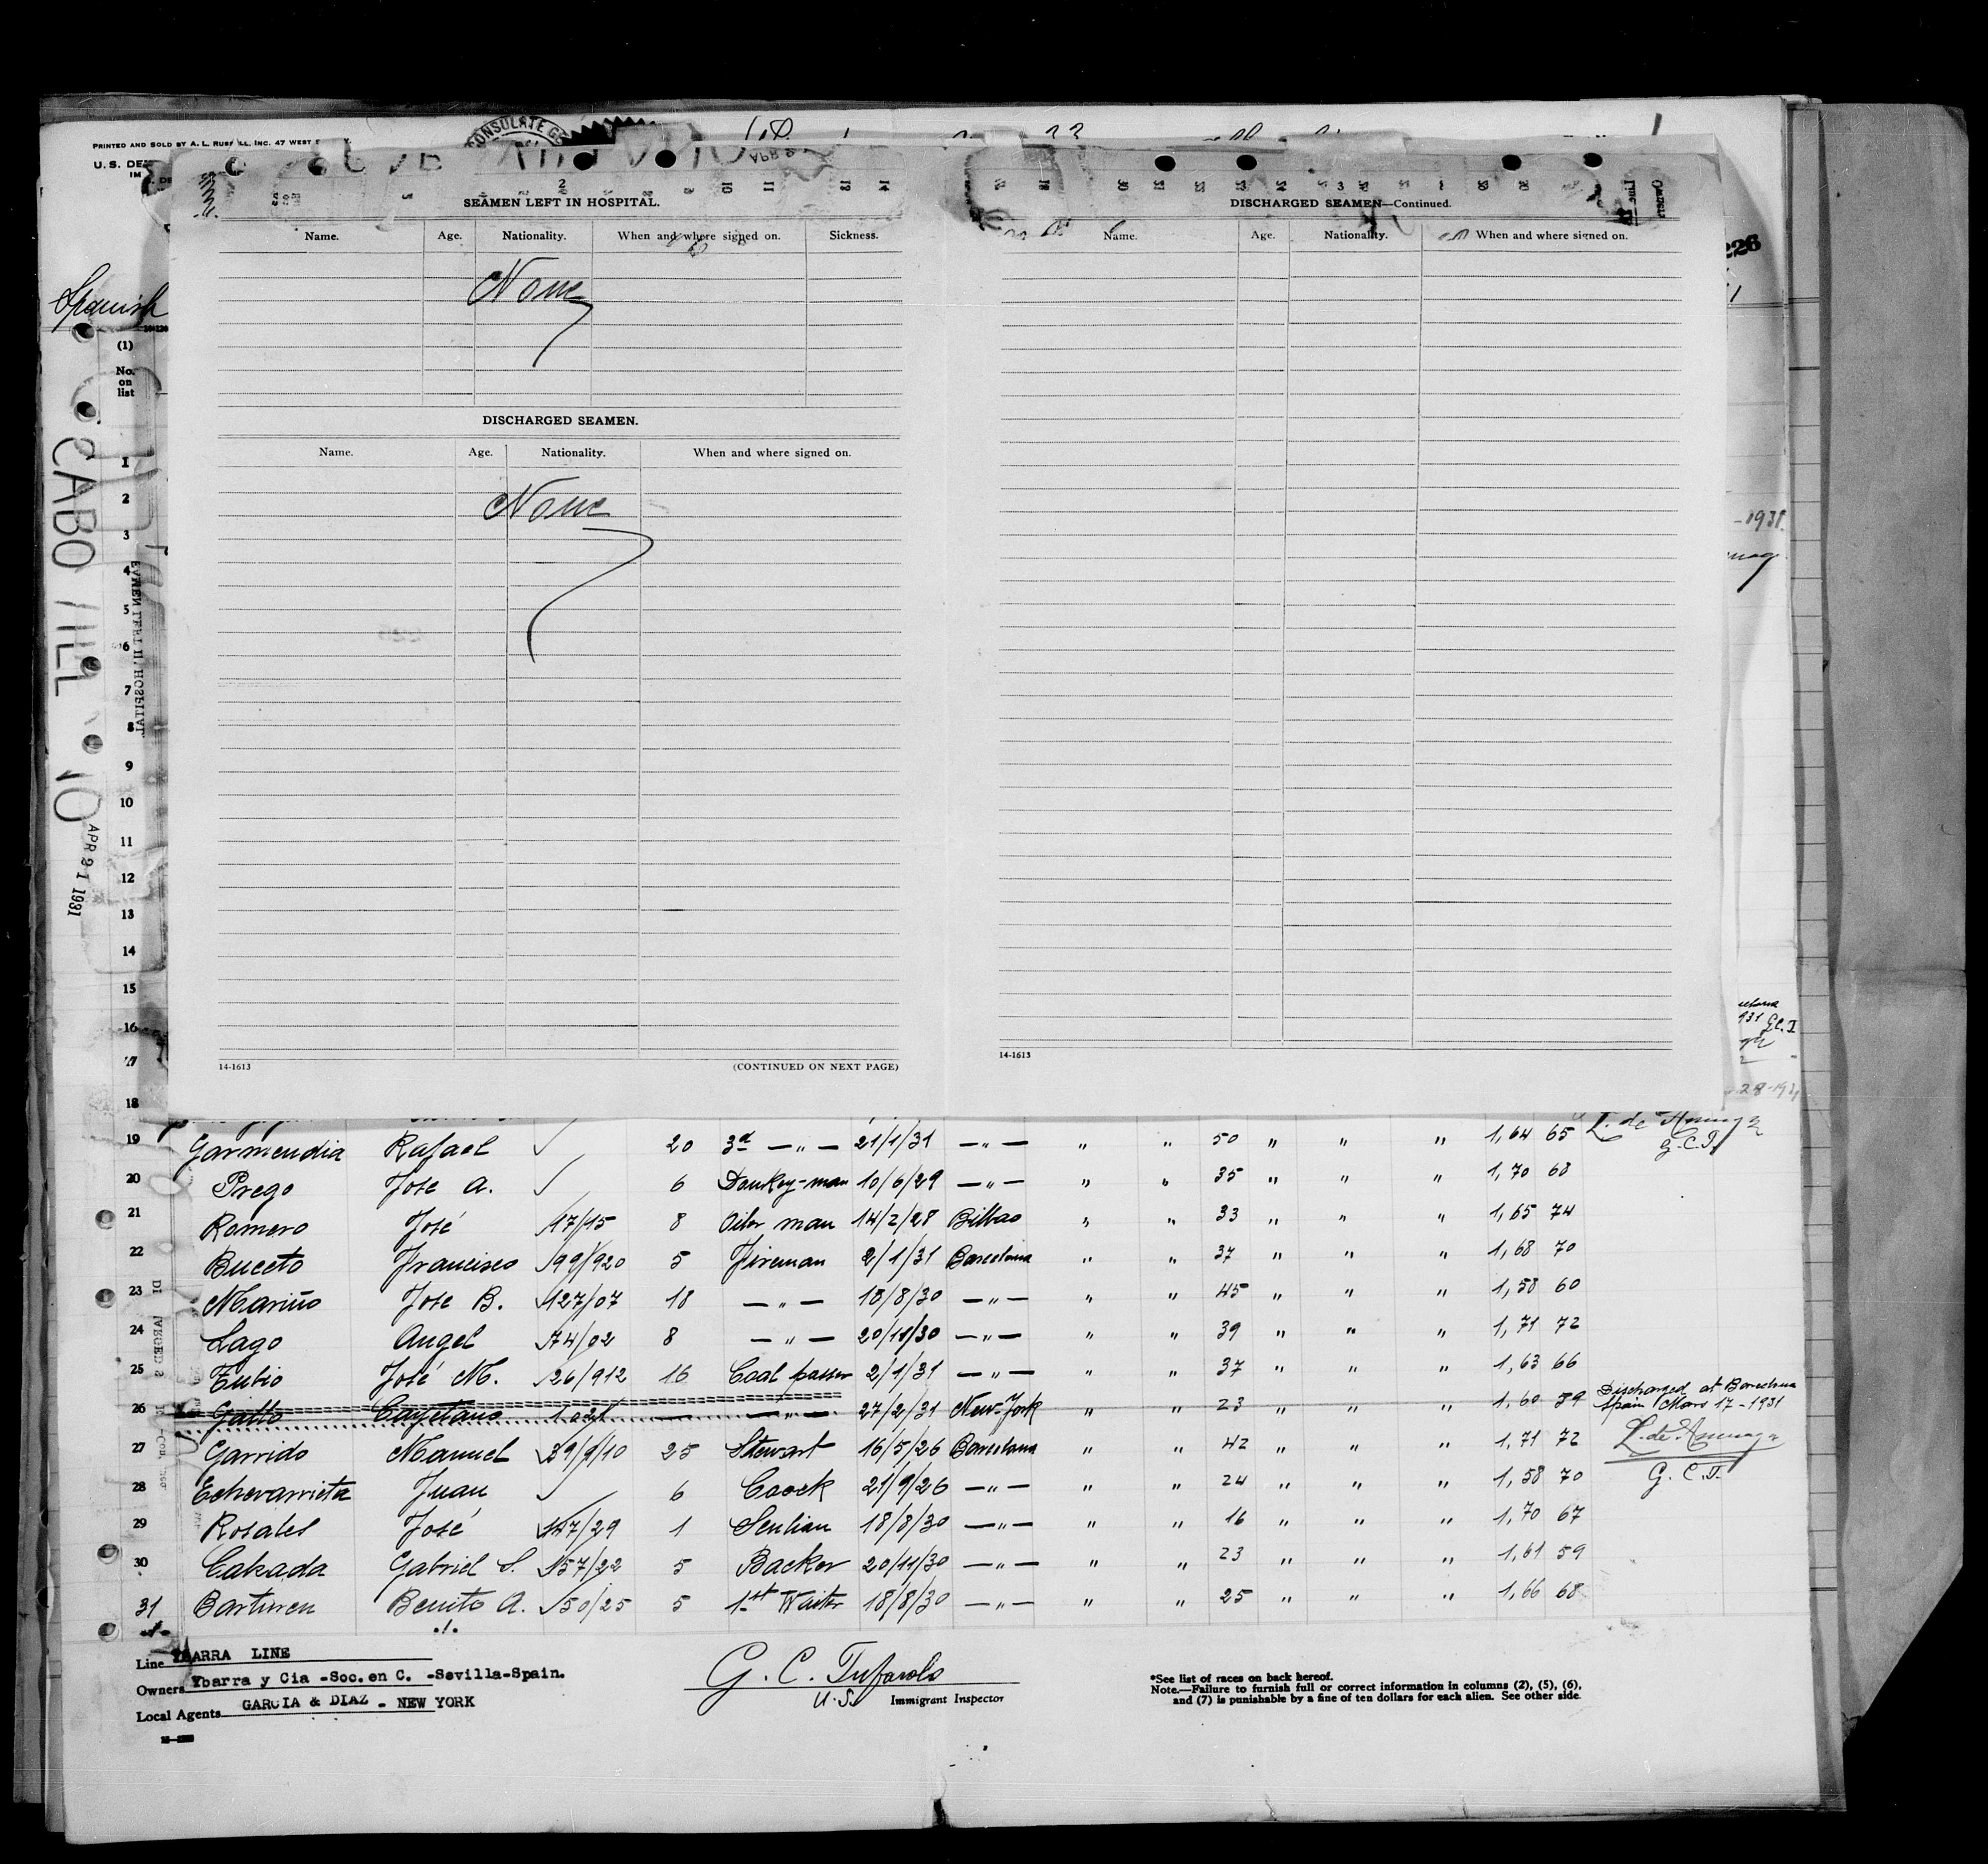 PRINTED AND SOLD BY A. L. RUSSELL, INC. 47 WEST
U. S. DE
CONSULATE GE
Spanish
(1)
No. on list
CABO
APR 21 1931
2
SEAMEN LEFT IN HOSPITAL.
Name. Age. Nationality. When and where signed on. Sickness.
None
DISCHARGED SEAMEN.
Name. Age. Nationality. When and where signed on.
None
14-1613 (CONTINUED ON NEXT PAGE)
3
DISCHARGED SEAMEN—Continued.
Name. Age. Nationality. When and where signed on.
14-1613
1
2
3
4
5
6
7
8
9
10
11
12
13
14
15
16
17
18
19 Garmendia Rafael ✓ 20 3d — " — 21/1/31 — " — " " 50 " " " 1,64 65
G.C.T.
20 Prego Jose A. ✓ 6 Donkey-man 10/6/29 — " — " " 35 " " " 1,70 68
21 Romero José 17/15 8 Oiler man 14/2/28 Bilbao " " 33 " " " 1,65 74
22 Buceto Francisco 99/920 5 Fireman 2/1/31 Barcelona " " 37 " " " 1,68 70
23 Mariño Jose B. ✓127/07 18 — " — 18/8/30 — " — " " 45 " " " 1,58 60
24 Lago Angel ✓74/02 8 — " — 20/11/30 — " — " " 39 " " " 1,71 72
25 Tubio José M. ✓26/912 16 Coal passer 2/1/31 — " — " " 37 " " " 1,63 66
26 Gatto Cayetano — — " — 27/2/31 New-York " " 23 " " " 1,60 59 Discharged at Barcelona Spain Mars 17-1931
27 Garrido Manuel 39/9/10 25 Stewart 16/5/26 Barcelona " " 42 " " " 1,71 72
28 Echevarrieta Juan ✓ 6 Coock 21/9/26 — " — " " 24 " " " 1,58 70 G. C. T.
29 Rosales José 147/29 1 Scullian 18/8/30 — " — " " 16 " " " 1,70 67
30 Calzada Gabriel S. 157/22 5 Backer 20/11/30 — " — " " 23 " " " 1,61 59
31 Barturen Benito A. ✓50/25 5 1st Waiter 18/8/30 — " — " " 25 " " " 1,66 68
Line YBARRA LINE
Owners Ybarra y Cia -Soc. en C. -Sevilla-Spain.
Local Agents GARCIA & DIAZ - NEW YORK
G. C. Tufarolo
U.S. Immigrant Inspector
*See list of races on back hereof.
Note.—Failure to furnish full or correct information in columns (2), (5), (6),
and (7) is punishable by a fine of ten dollars for each alien. See other side.